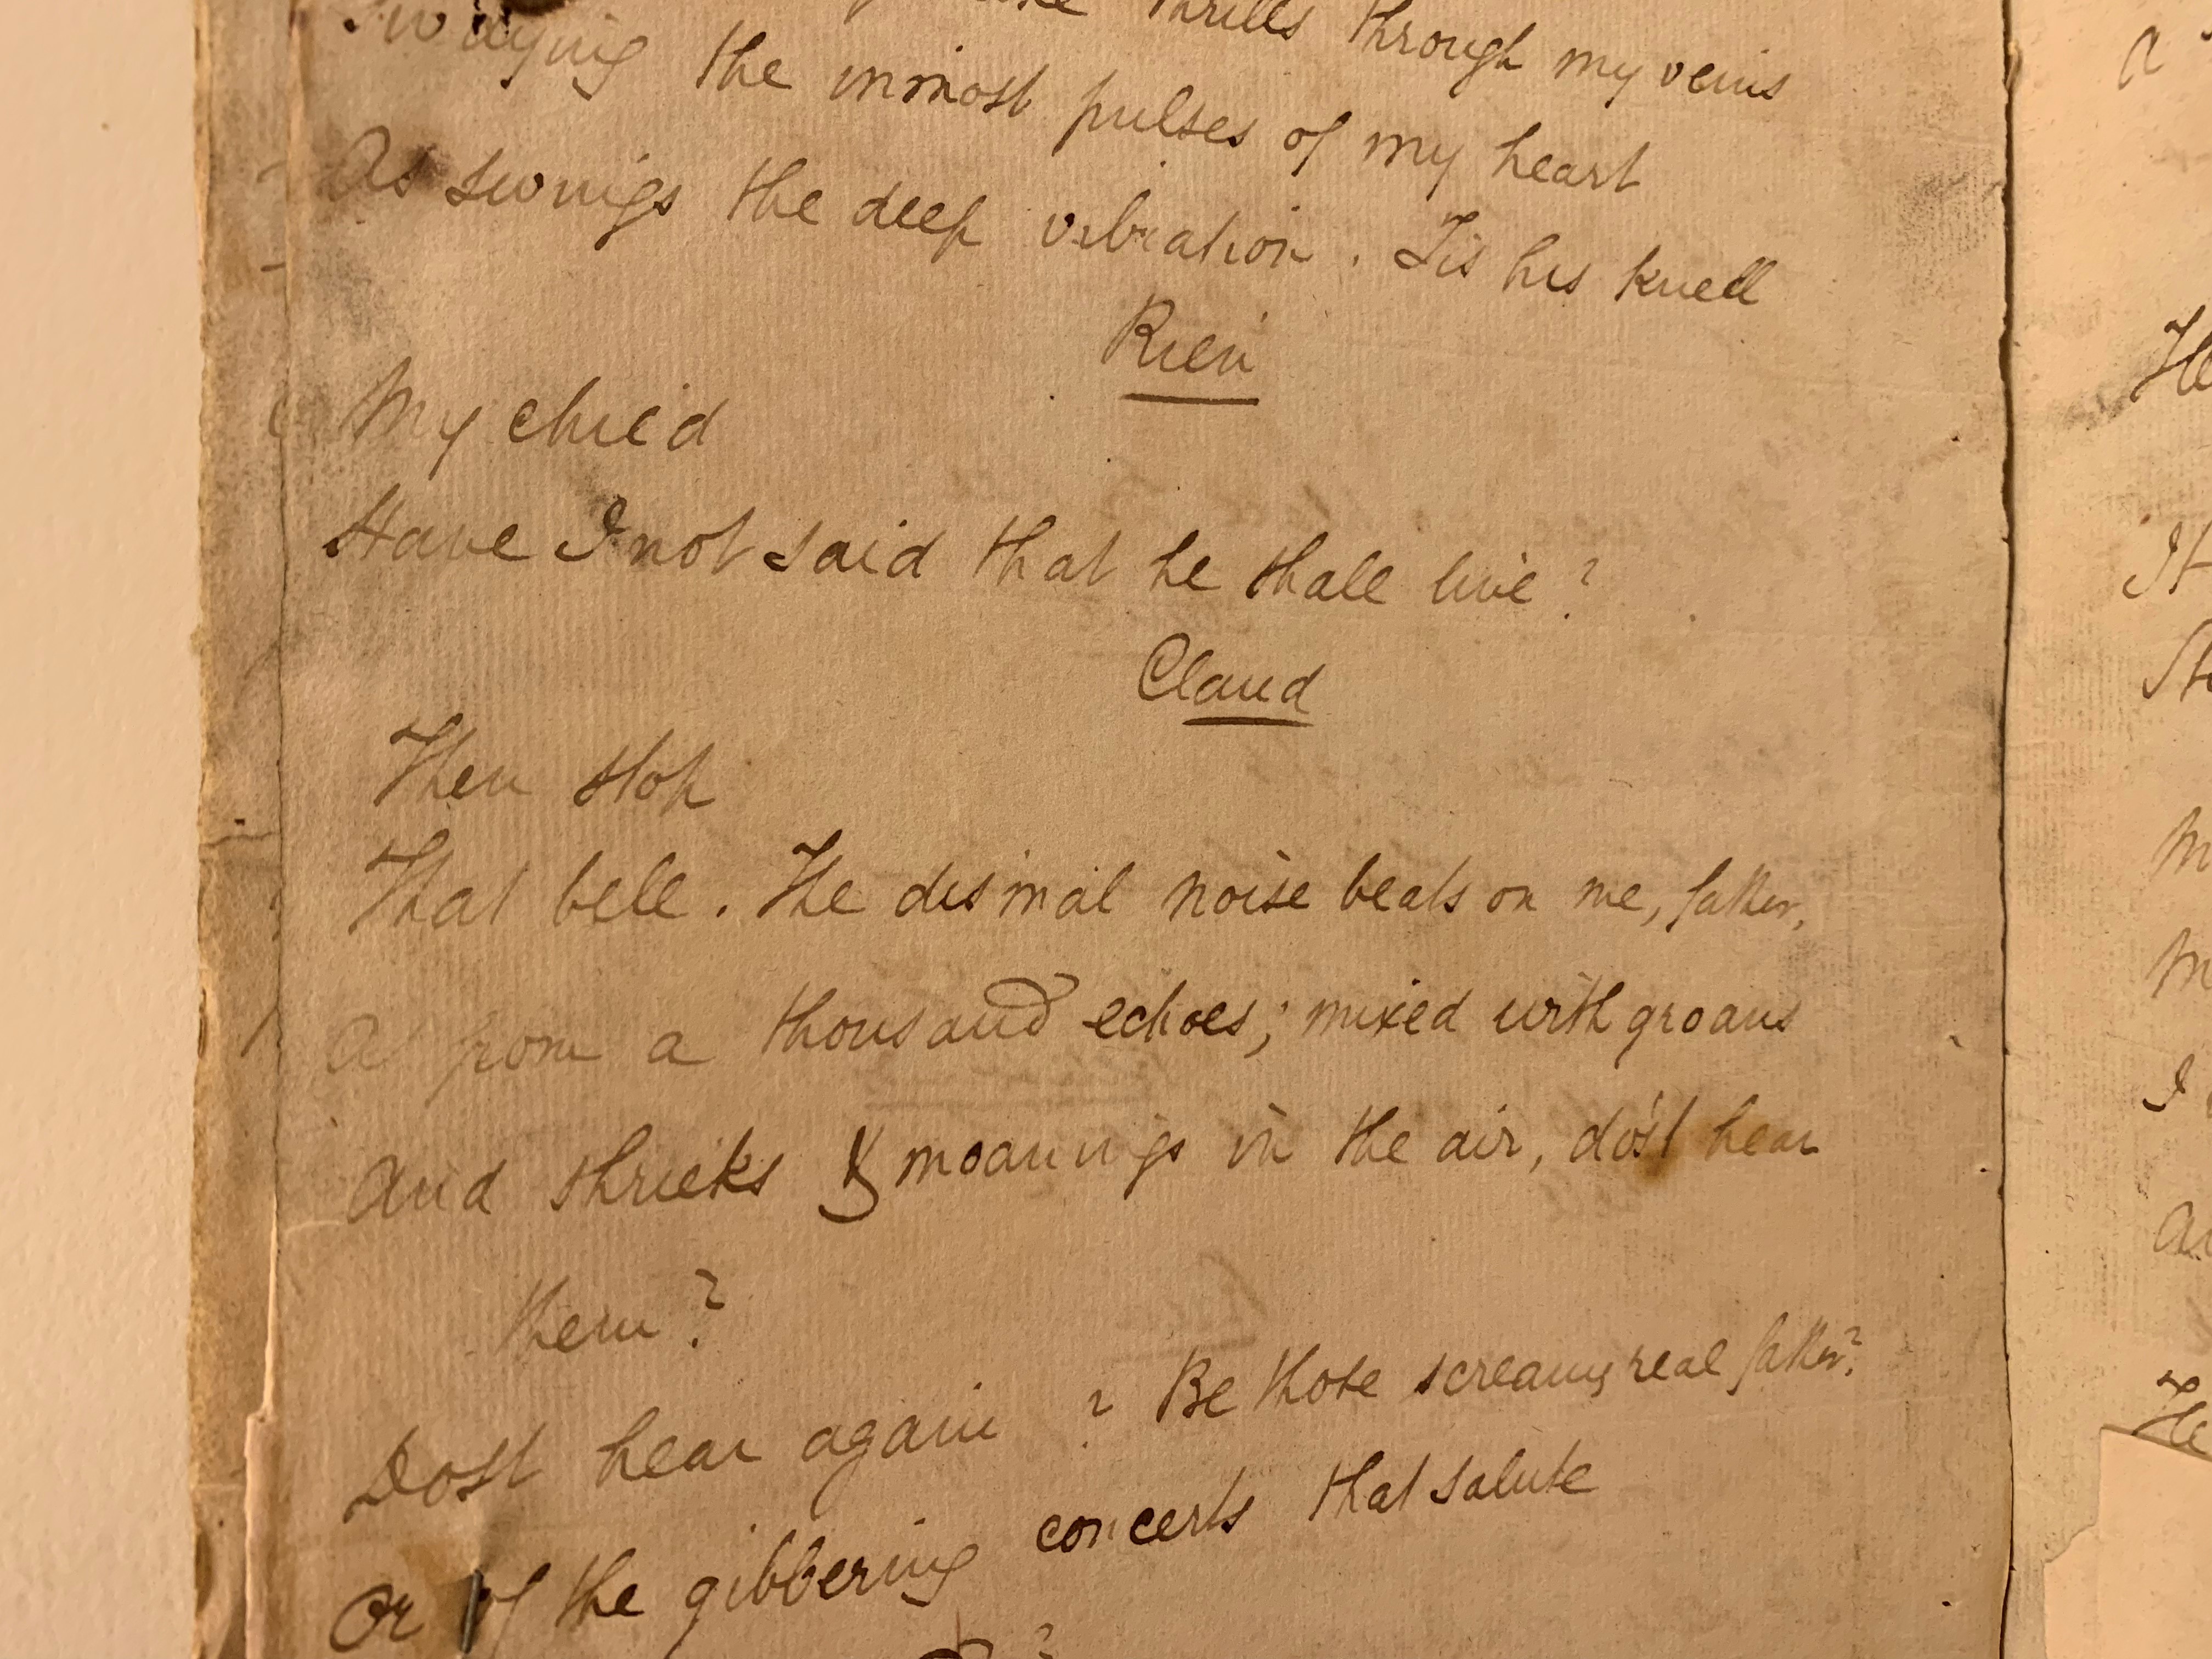 thrills through my veins
Swinging the inmost pulses of my heart
As swings the deep vibration. Tis his knell
Rien
My child
Have I not said that he shall live?
Claud
Then stop
That bell. The dismal noise beats on me, father,
As from a thousand echoes; mixed with groans
And shrieks & moanings in the air, dost hear
them?
Dost hear again? Be those screams real father?
Or of the gibbering concerts that salute